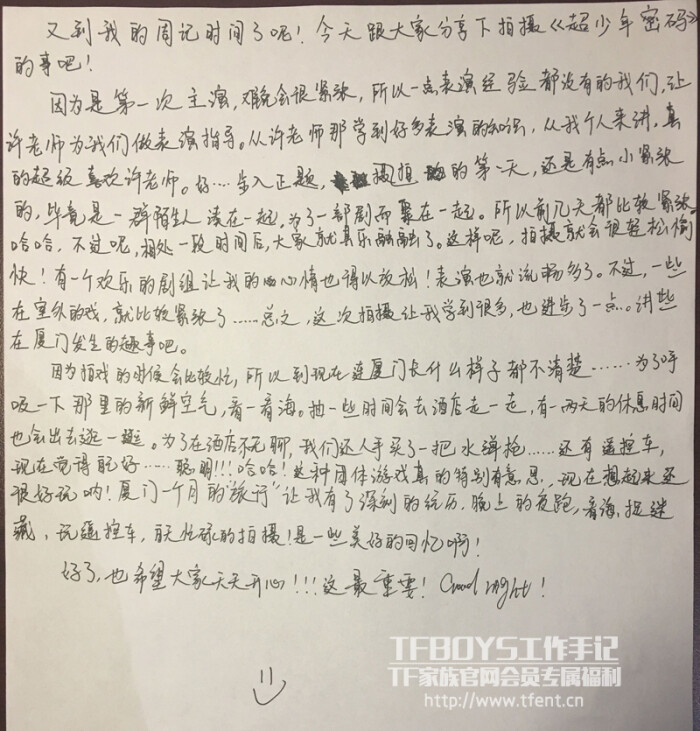 又到我的周记时间了呢！今天跟大家分享下拍摄《超少年密码》
的事吧！
因为是第一次主演，难免会很紧张，所以一点表演经验都没有的我们，让
许老师为我们做表演指导。从许老师那学到好多表演的知识，从我个人来讲，真
的超级喜欢许老师。好……步入正题，拍摄的第一天，还是有点小紧张
的，毕竟是一群陌生人凑在一起，为了一部剧而聚在一起。所以前几天都比较紧张
哈哈，不过呢，相处一段时间后，大家就其乐融融了。这样呢，拍摄就会很轻松愉
快！有一个欢乐的剧组让我的心情也得以放松！表演也就流畅多了。不过，一些
在室外的戏，就比较紧张了……总之，这次拍摄让我学到很多，也进步了一点。讲些
在厦门发生的趣事吧。
因为拍戏的时候会比较忙，所以到现在连厦门长什么样子都不清楚……为了呼
吸一下那里的新鲜空气，看一看海。抽一些时间会去酒店走一走，有一两天的休息时间
也会出去逛一逛。为了在酒店不无聊，我们还人手买了一把水弹枪……还有遥控车，
现在觉得玩好……聪明！！！哈哈！这种团体游戏真的特别有意思，现在想起来还
很好玩呐！厦门一个月的“旅行”让我有了深刻的经历，晚上的夜跑，看海，捉迷
藏，玩遥控车，白天忙碌的拍摄！是一些美好的回忆啊！
好了，也希望大家天天开心！！！这最重要！Good night！
TFBOYS工作手记
TF家族官网会员专属福利
http://www.tfent.cn